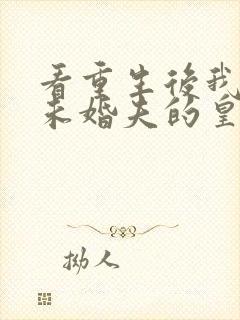 看重生後我
未婚夫的皇
拗人